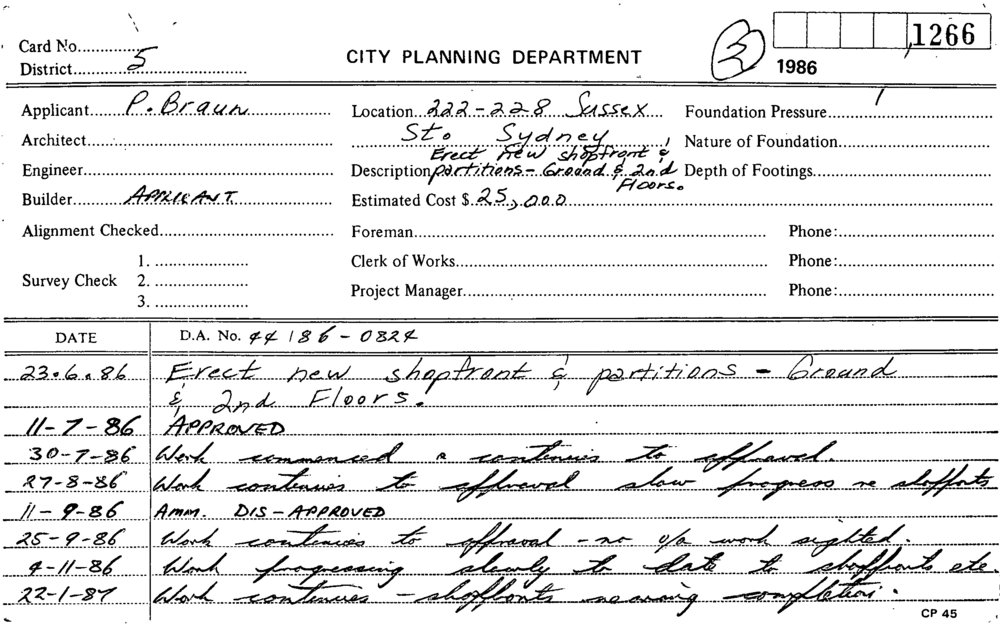 Card No.
District 5
CITY PLANNING DEPARTMENT
3
1266
1986
Applicant P. Braun
Location 222-228 Sussex
Foundation Pressure
Architect
St. Sydney
Nature of Foundation
Erect new shopfront &
Engineer
Description partitions - Ground & 2nd
Depth of Footings
Floors.
Builder APPLICANT
Estimated Cost $ 25,000
Alignment Checked
Foreman
Phone:
Survey Check
1.
Clerk of Works
Phone:
2.
Project Manager
Phone:
3.
DATE D.A. No. 44 186-0824
23.6.86 Erect new shopfront & partitions - Ground
& 2nd Floors.
11-7-86 APPROVED
30-7-86 Work commenced & continues to approval.
27-8-86 Work continues to approval slow progress re shopfronts
11-9-86 AMM. DIS-APPROVED
25-9-86 Work continues to approval - no o/a work sighted.
4-11-86 Work progressing slowly to date to shopfronts etc.
22-1-87 Work continues - shopfronts nearing completion.
CP 45